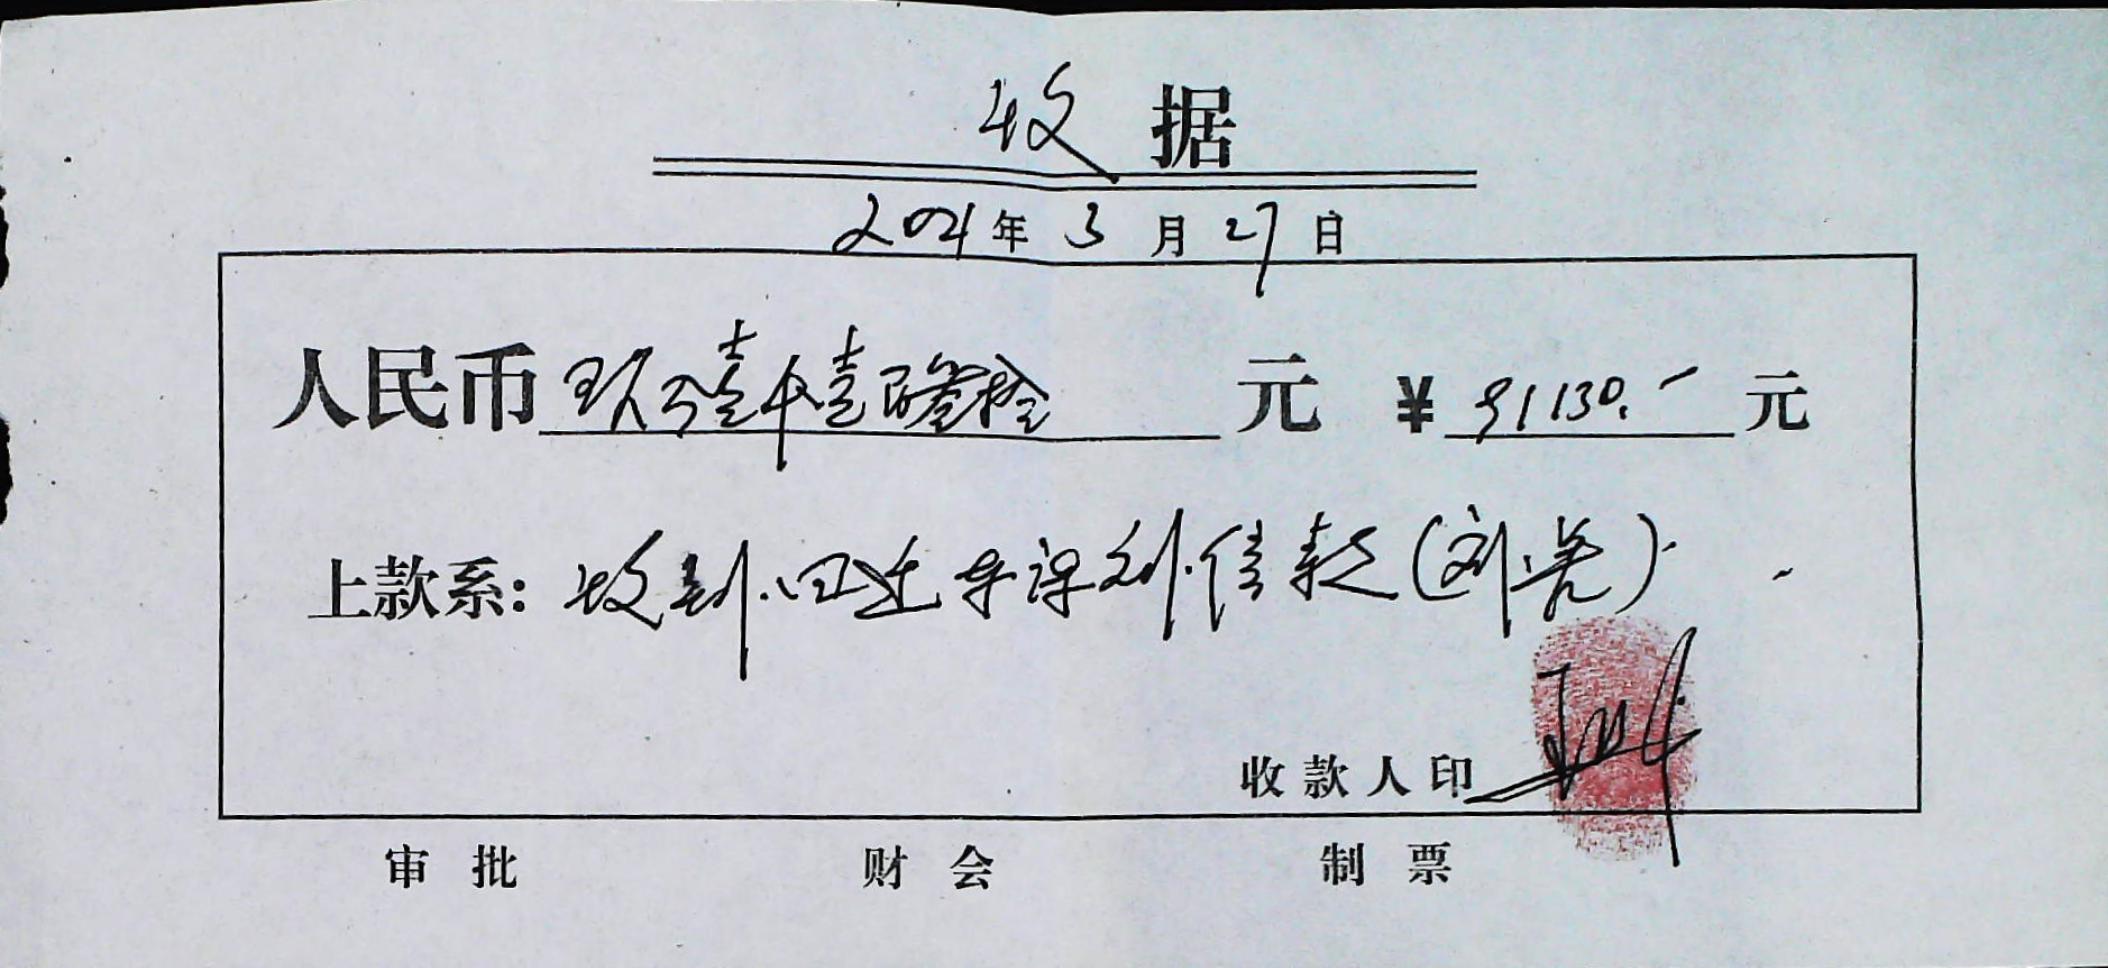 收据
2021年3月27日
人民币玖万壹仟壹百叁拾元 ¥91130.-元
上款系:收到.四 款(刘亮).
收款人印
审批 财会 制票